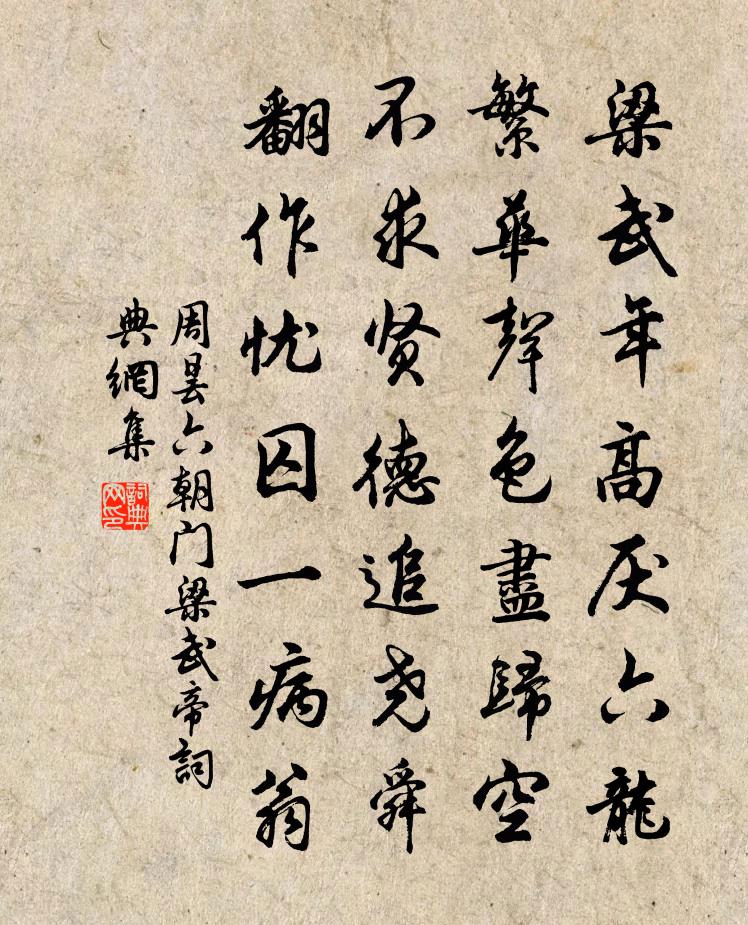 梁武年高厌六龍
繁華聲色盡歸空
不求贤德追尧舜
翻作忧囚一病翁
周昙六朝门梁武帝詞
典網集
詞典网印